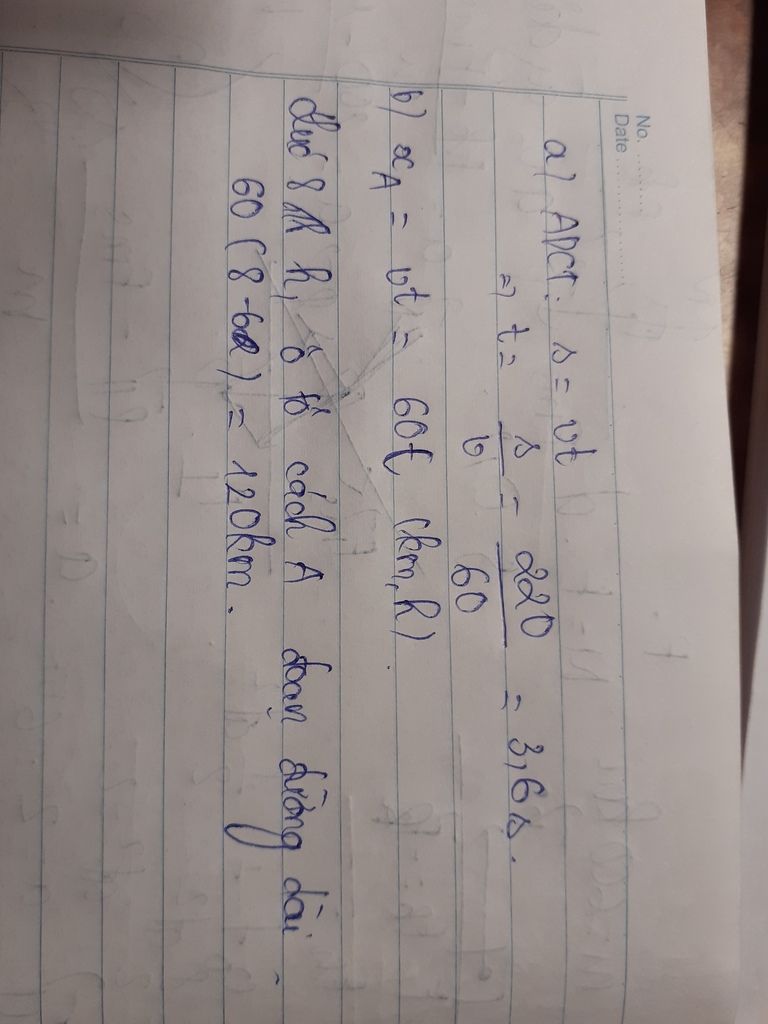 No. ............
Date ........................
a) ADCT: s = vt
=> t = s/v = 220/60 = 3,6 s.
b) x_A = vt = 60t (km, h)
Lúc 8 h, ô tô cách A đoạn đường dài
60 (8-6) = 120km.